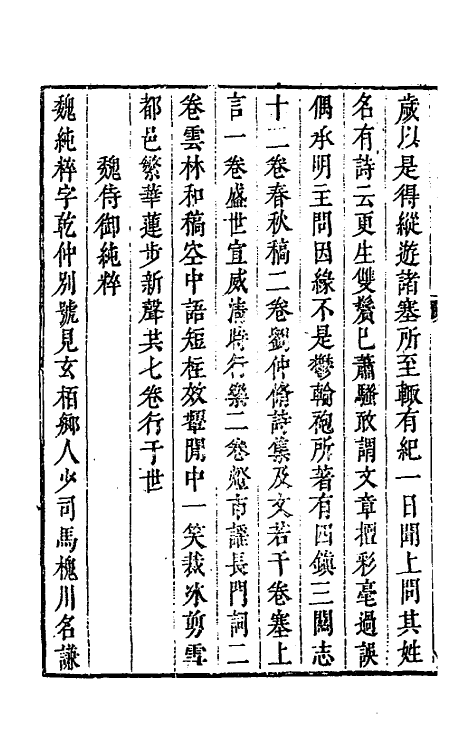 歲以是得縱遊諸塞所至輙有紀一日聞上問其姓
名有詩云更生雙鬢已蕭騷敢謂文章擅彩毫過誤
偶承明主問因緣不是鬱輪袍所著有四鎮三關志
十二卷春秋稿二卷劉仲脩詩集及文若干卷塞上
言一卷盛世宣威清時行樂二卷燈市謠長門詞二
卷雲林和稿空中語短柱效顰閒中一笑裁冰剪雪
都邑繁華蓮步新聲共七卷行于世
魏侍御純粹
魏純粹字乾仲別號見玄栢鄉人少司馬槐川名謙